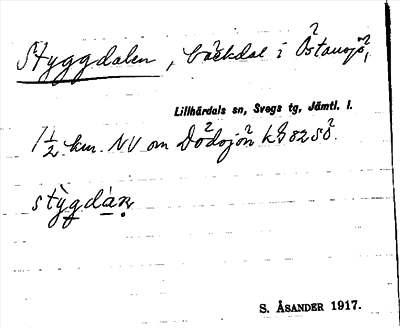 Styggdalen, bäckdal i Östansjö,
Lillhärdals sn, Svegs tg, Jämtl. l.
1 1/2 km. NV om Dödsjön
stỳgdàṇ
S. ÅSANDER 1917.